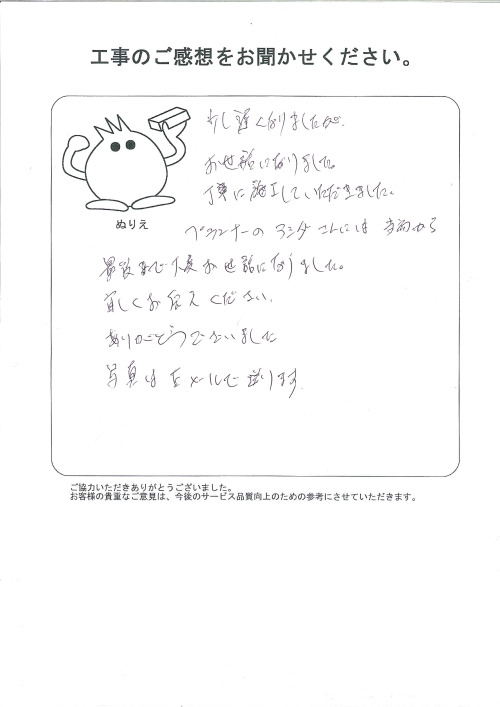 工事のご感想をお聞かせください。
少し遅くなりましたが、
お世話になりました。
丁寧に施工していただきました。
ぬりえ
プランナーの さんには 当初から
最後まで大変お世話になりました。
宜しくお伝えください。
ありがとうございました
写真はEメールで送ります
ご協力いただきありがとうございました。
お客様の貴重なご意見は、今後のサービス品質向上のための参考にさせていただきます。